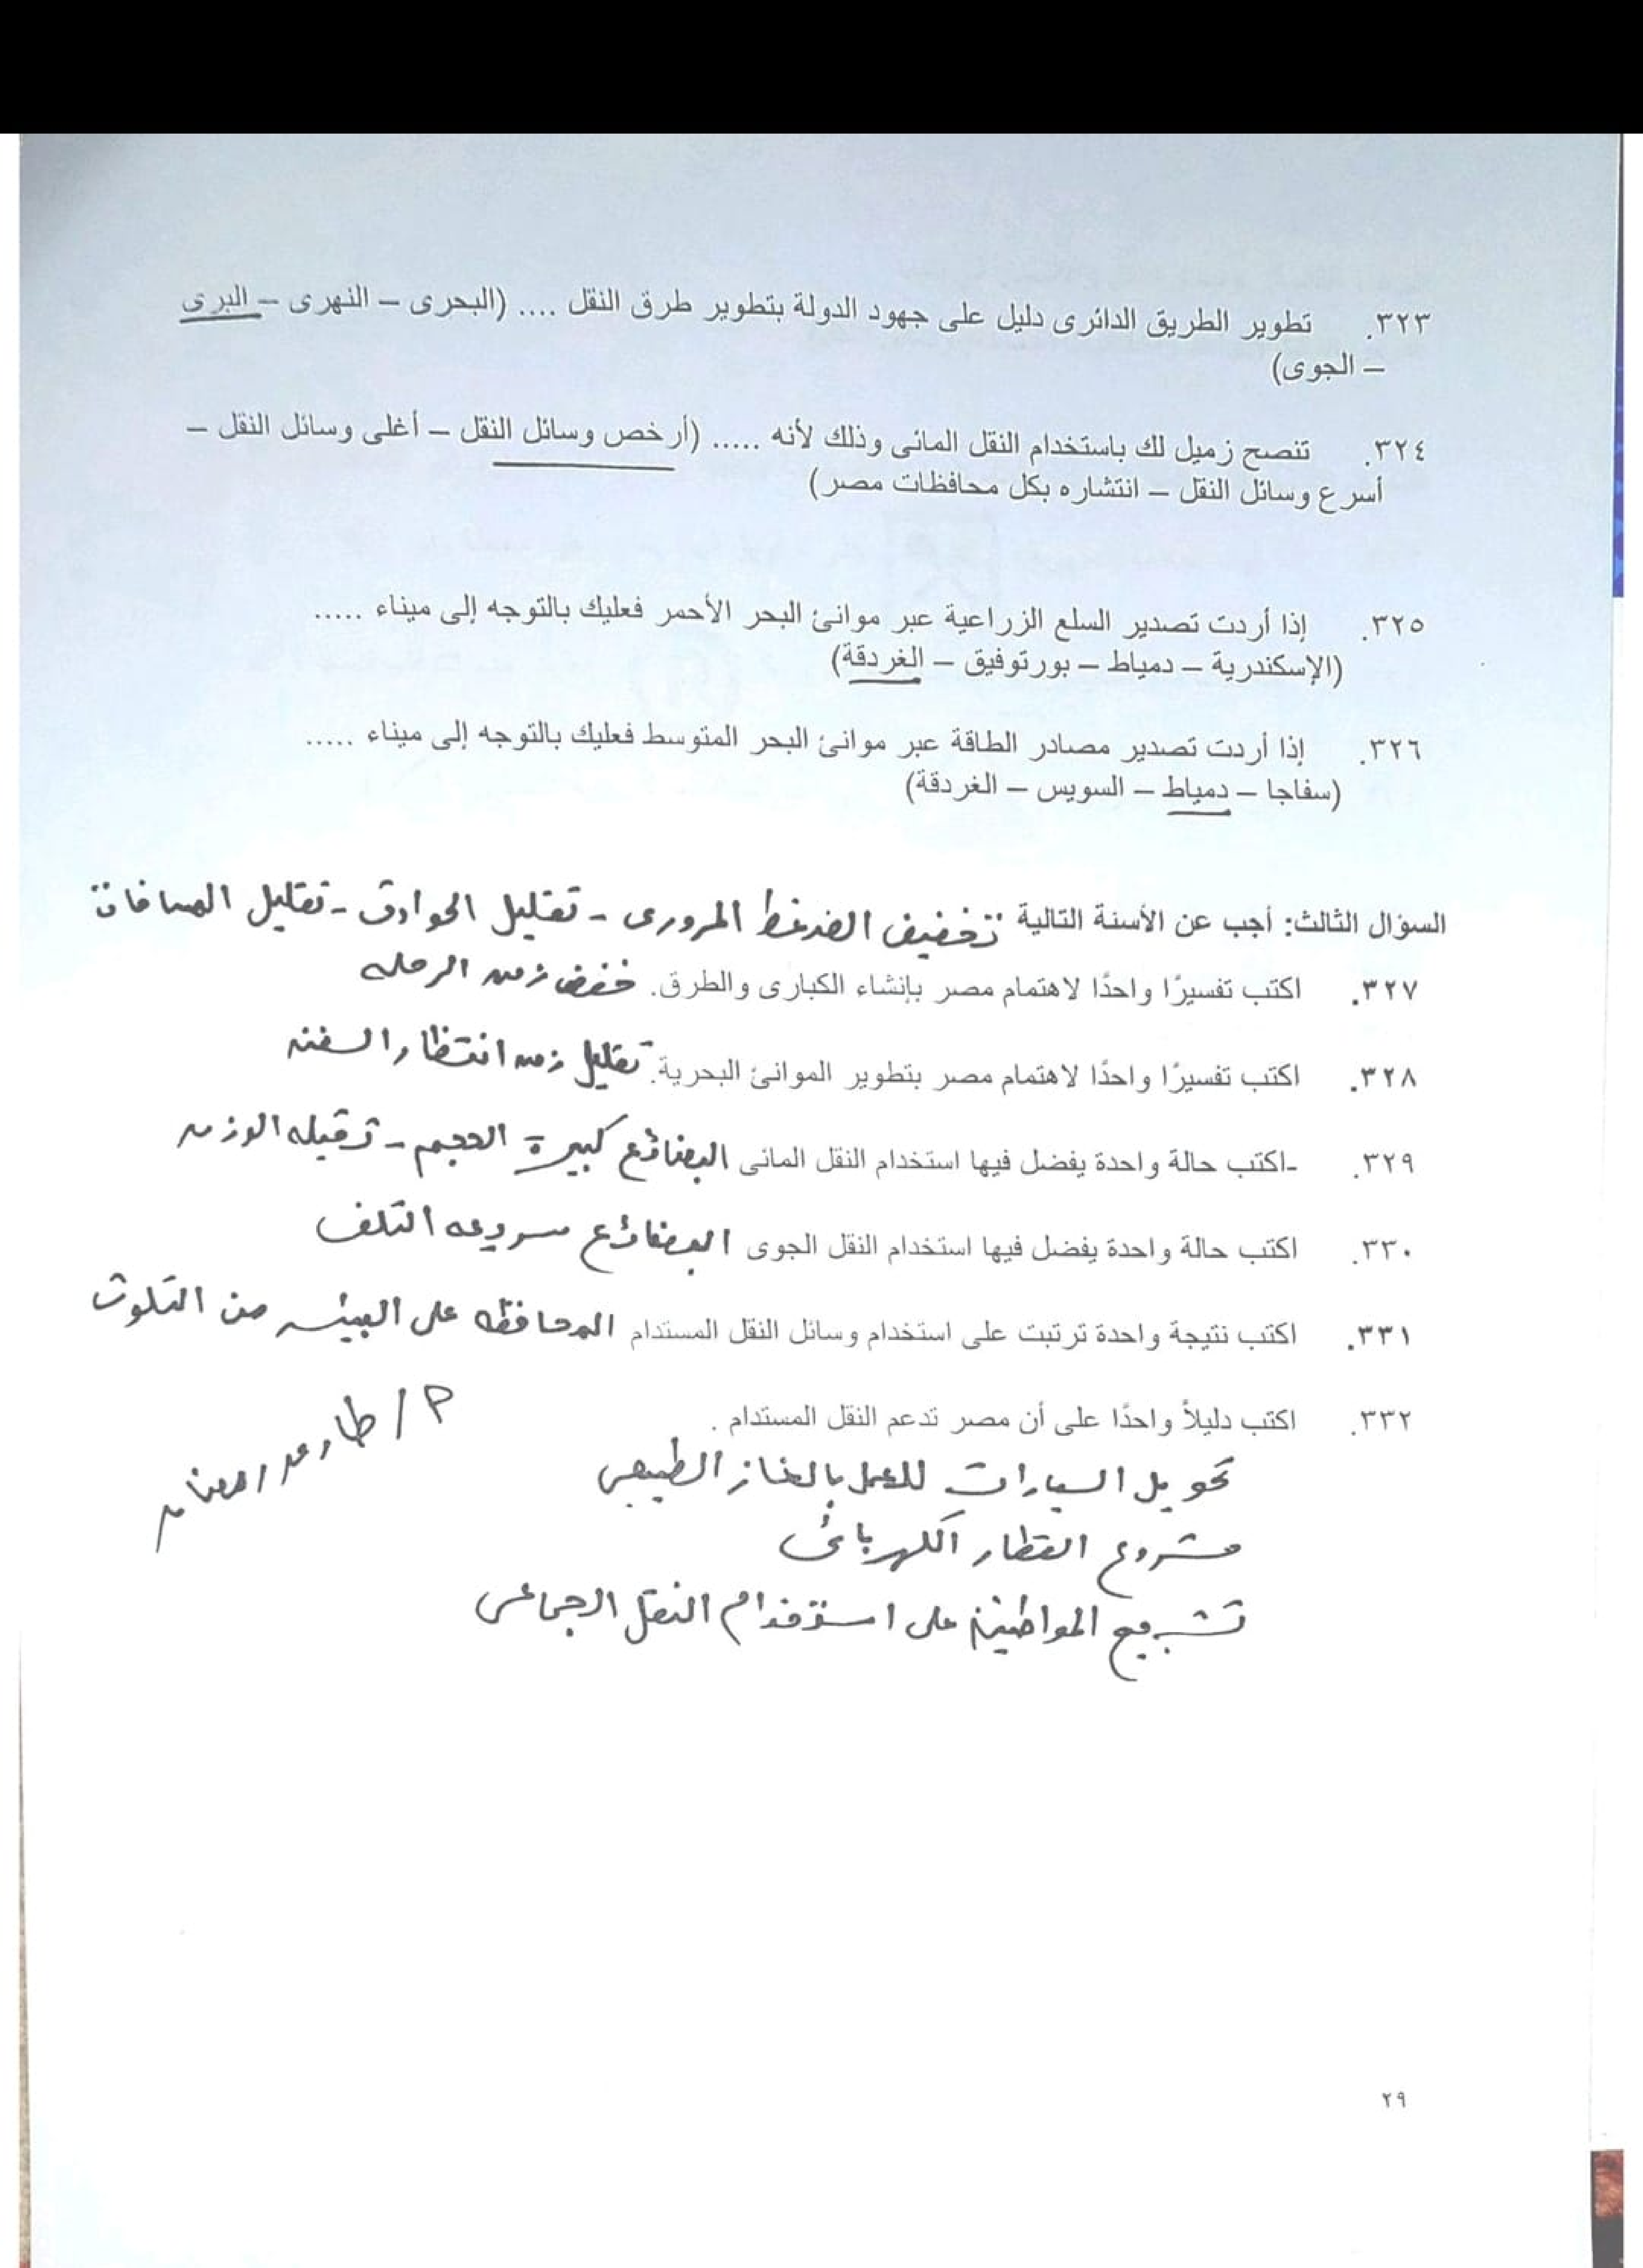 ٣٢٣. تطوير الطريق الدائرى دليل على جهود الدولة بتطوير طرق النقل .... (البحرى – النهرى – البرى
– الجوى)
٣٢٤. تنصح زميل لك باستخدام النقل المائى وذلك لأنه ..... (أرخص وسائل النقل – أغلى وسائل النقل –
أسرع وسائل النقل – انتشاره بكل محافظات مصر)
٣٢٥. إذا أردت تصدير السلع الزراعية عبر موانئ البحر الأحمر فعليك بالتوجه إلى ميناء .....
(الإسكندرية – دمياط – بورتوفيق – الغردقة)
٣٢٦. إذا أردت تصدير مصادر الطاقة عبر موانئ البحر المتوسط فعليك بالتوجه إلى ميناء .....
(سفاجا – دمياط – السويس – الغردقة)
السؤال الثالث: أجب عن الأسنة التالية تخفيف الضغط المرورى - تقليل الحوادث - تقليل المسافات
٣٢٧. اكتب تفسيرًا واحدًا لاهتمام مصر بإنشاء الكبارى والطرق. خفض زمن الرحله
٣٢٨. اكتب تفسيرًا واحدًا لاهتمام مصر بتطوير الموانئ البحرية. تقليل زمن انتظار السفن
٣٢٩. -اكتب حالة واحدة يفضل فيها استخدام النقل المائى البضائع كبيرة الحجم - ثقيله الوزن
٣٣٠. اكتب حالة واحدة يفضل فيها استخدام النقل الجوى البضائع سريعه التلف
٣٣١. اكتب نتيجة واحدة ترتبت على استخدام وسائل النقل المستدام المحافظه على البيئه من التلوث
٣٣٢. اكتب دليلاً واحدًا على أن مصر تدعم النقل المستدام .
تحويل السيارات للعمل بالغاز الطبيعى
مشروع القطار الكهربائى
تشجيع المواطنين على استخدام النقل الجماعى
٢٩